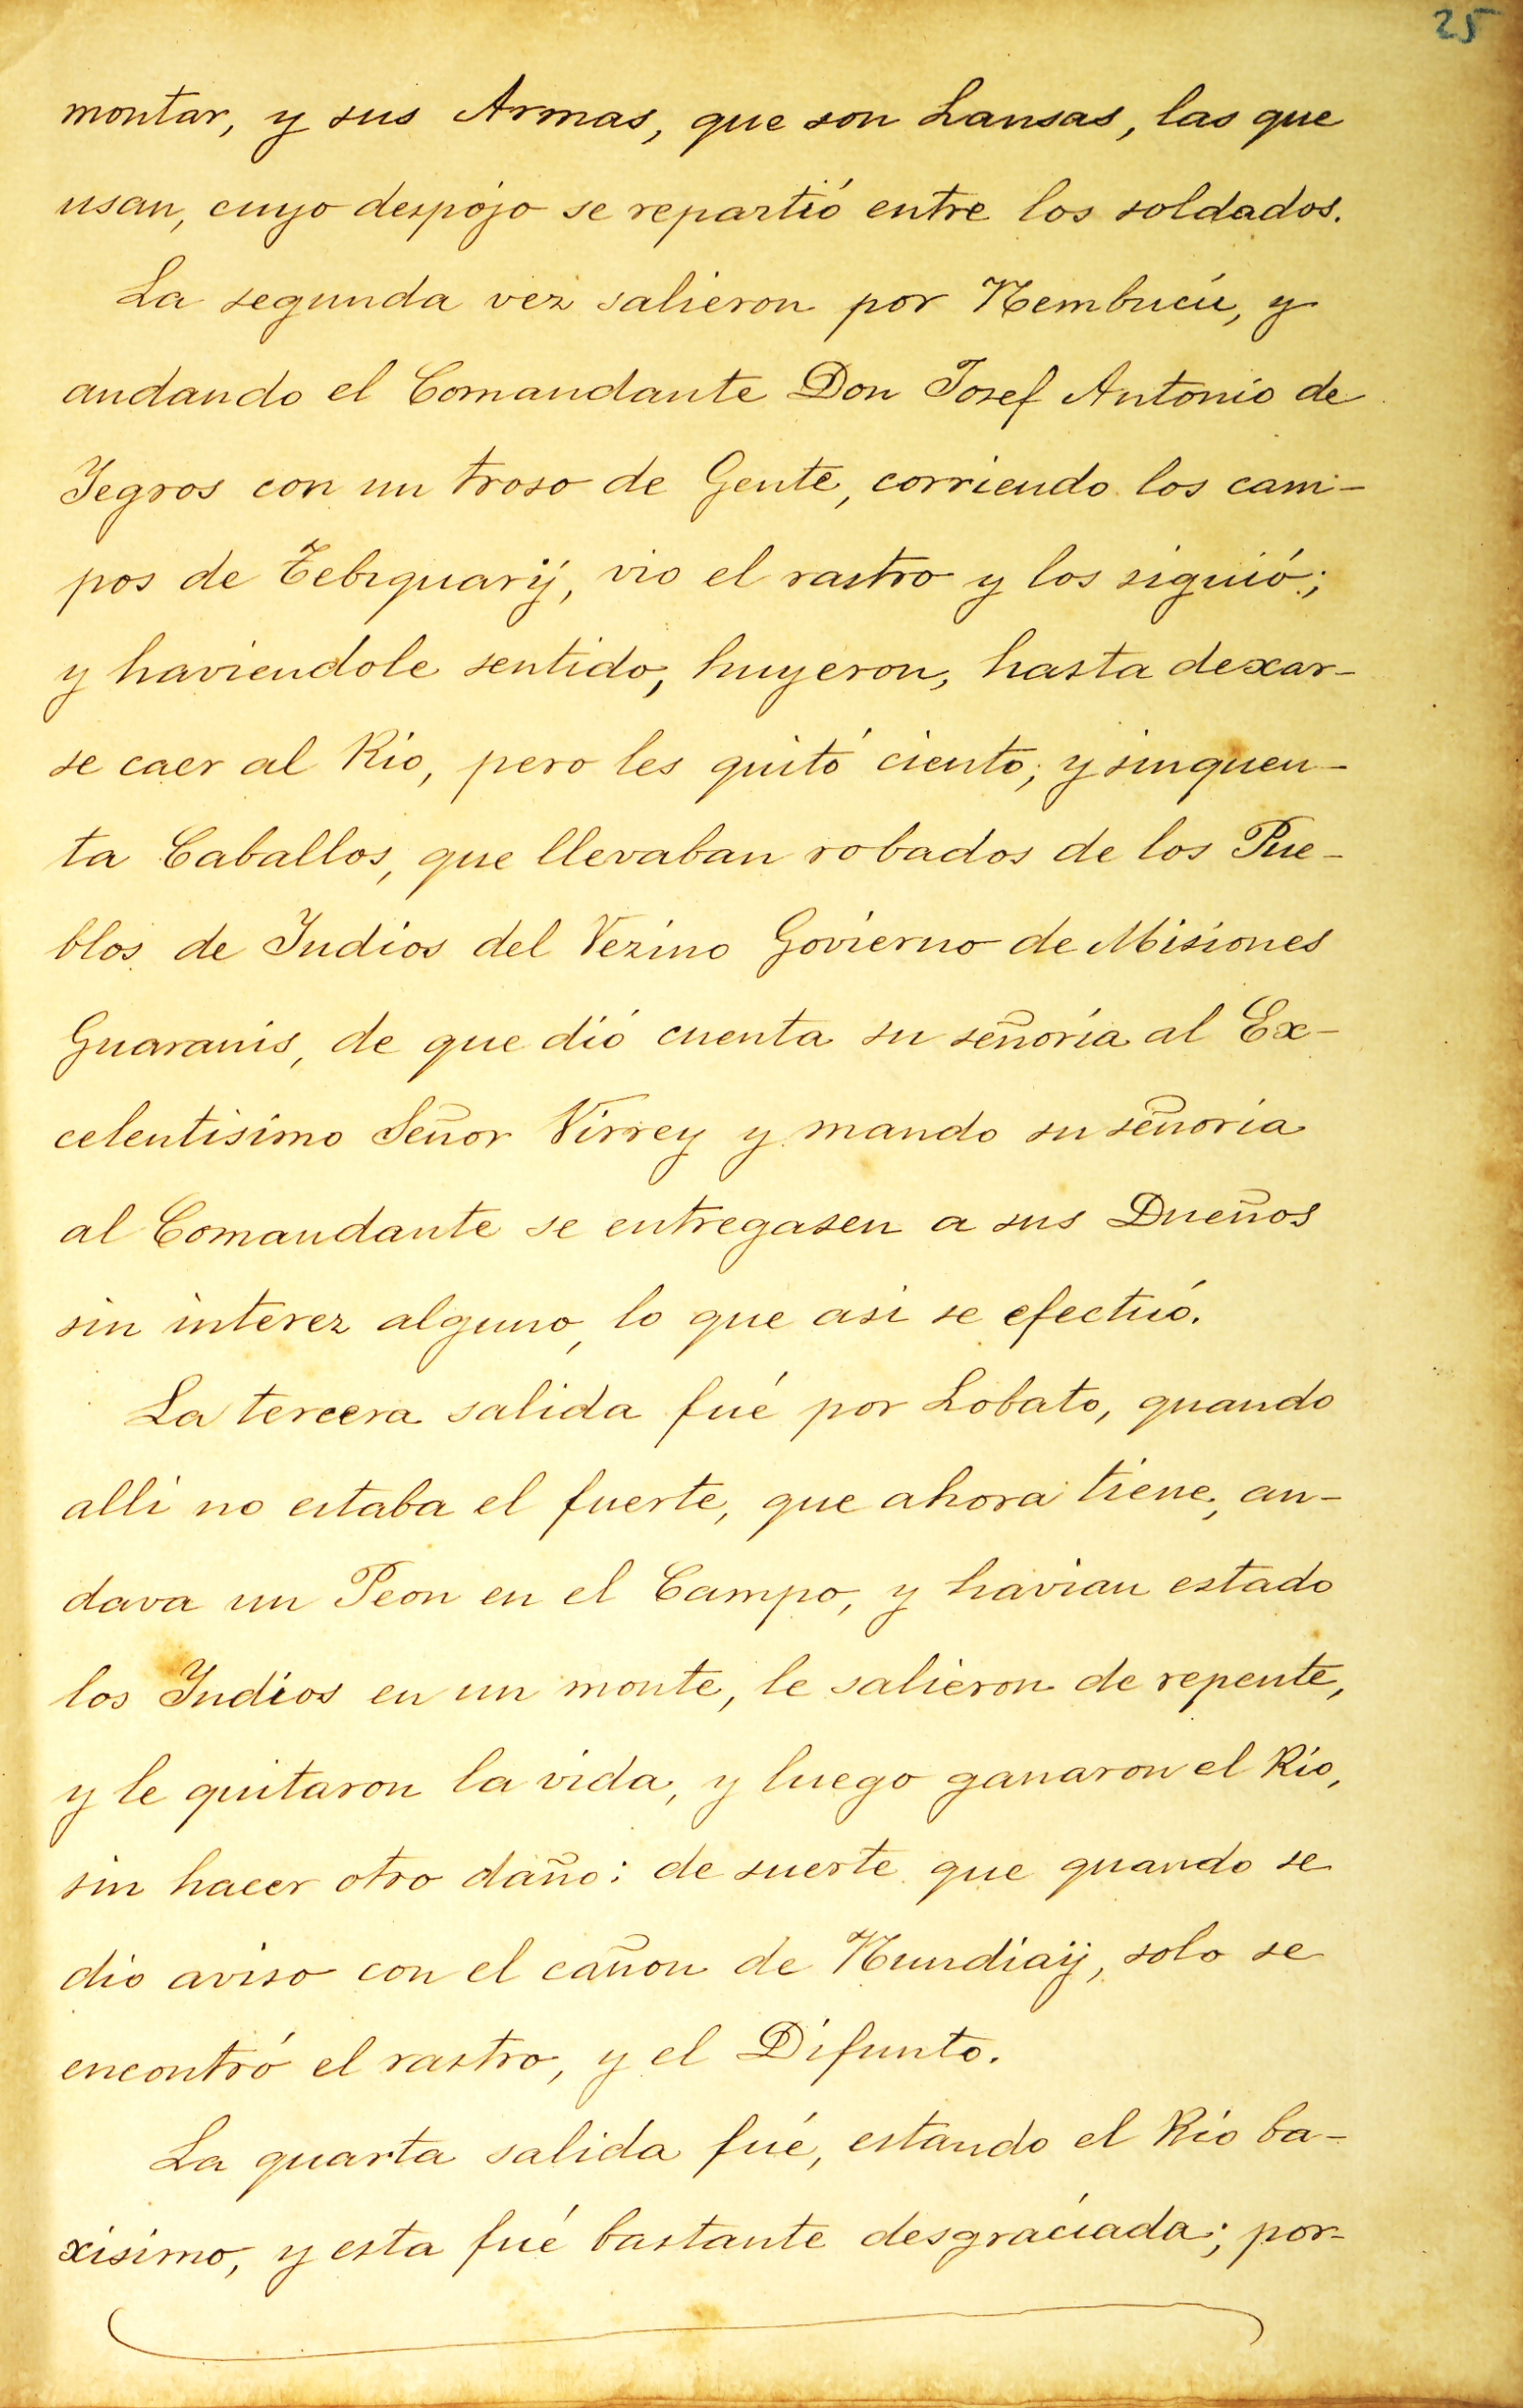 25
montar, y sus Armas, que son Lansas, las que
usan, cuyo despojo se repartió entre los soldados.
La segunda vez salieron por Nembucú, y
andando el Comandante Don Josef Antonio de
Yegros con un troso de Gente, corriendo los cam-
pos de Tebiquarÿ, vio el rastro y los siguió;
y haviendole sentido, huyeron, hasta dexar-
se caer al Rio, pero les quitó ciento, y sinquen-
ta Caballos, que llevaban robados de los Pue-
blos de Indios del Vezino Govierno de Misiones
Guaranis, de que dió cuenta su señoria al Ex-
celentisimo Señor Virrey y mando su señoria
al Comandante se entregasen a sus Dueños
sin interez alguno, lo que asi se efectuó.
La tercera salida fué por Lobato, quando
alli no estaba el fuerte, que ahora tiene, an-
dava un Peon en el Campo, y havian estado
los Indios en un monte, le salieron de repente,
y le quitaron la vida, y luego ganaron el Rio,
sin hacer otro daño: de suerte que quando se
dio aviso con el cañon de Nundiaÿ, solo se
encontró el rastro, y el Difunto.
La quarta salida fué, estando el Rio ba-
xisimo, y esta fué bastante desgraciada; por-